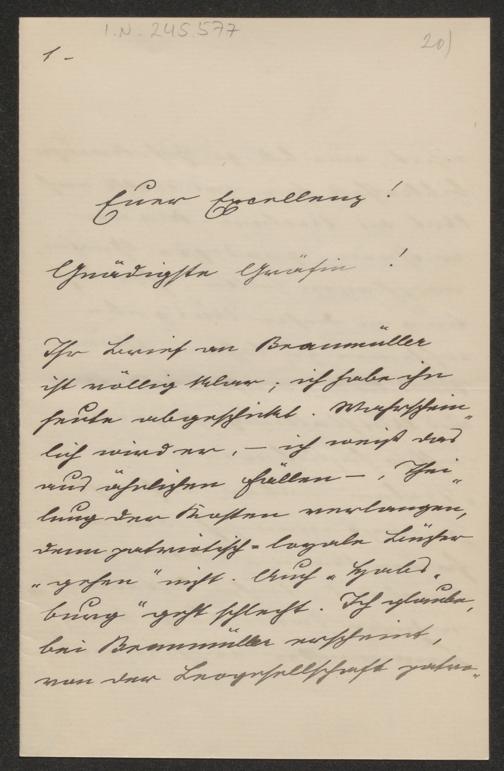 I.N. 245.577
20)
1 -
Euer Excellenz !
Gnädigste Gräfin !
Ihr Brief an Braumüller
ist völlig klar ; ich habe ihn
heute abgeschickt . Wahrschein„
lich wird er, – ich weiß das
aus ähnlichen Fällen – , Thei„
lung der Kosten verlangen,
denn patriotisch = loyale Bücher
„ gehen “ nicht . Auch „ Habs„
burg “ geht schlecht . Ich glaube,
bei Braumüller erscheint ,
von der Leogesellschaft patro„